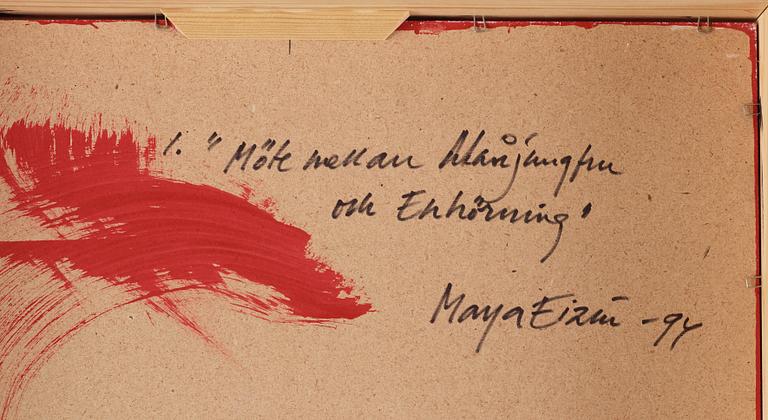 1. "Möte mellan Månjungfru
och Enhörning"
Maya Eizin -94